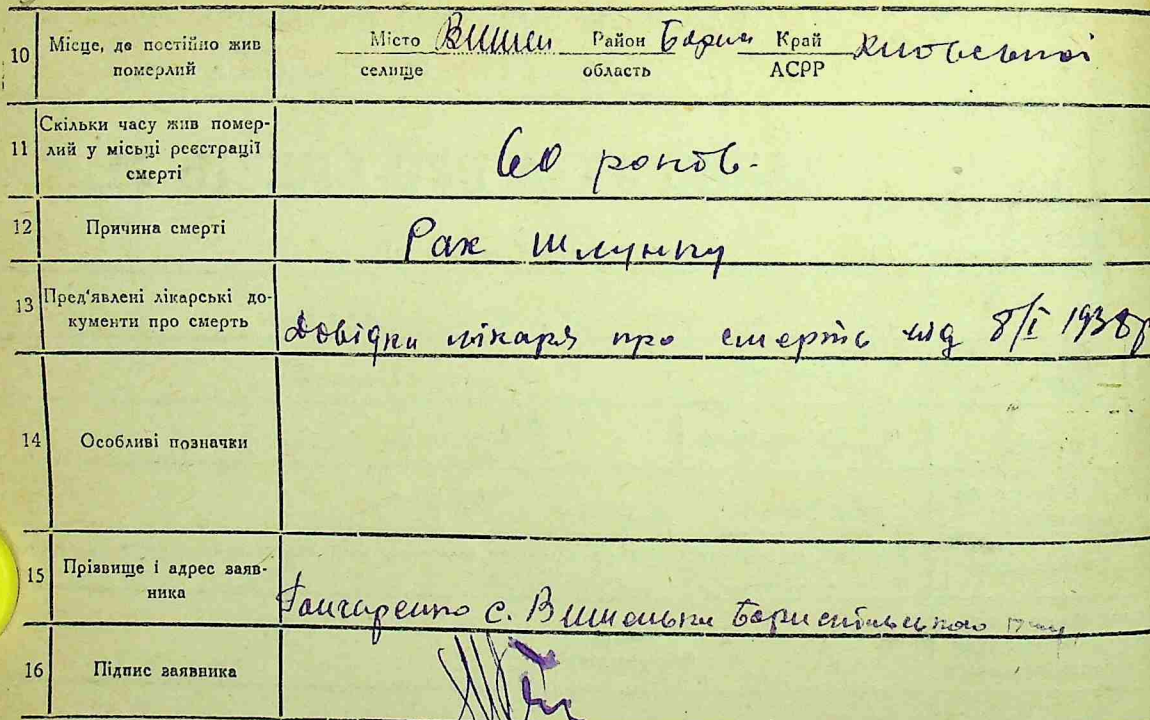 10 Місце, де постійно жив Місто Вишен Район Борис Край Київської
померлий селище область АСРР
11 Скільки часу жив помер-
лий у місьці реєстрації
смерті
60 років.
12 Причина смерті Рак шлунку
13 Пред'явлені лікарські до-
кументи про смерть
Довідки лікаря про смерть від 8/I 1938р
14 Особливі позначки
15 Прізвище і адрес заяв-
ника
Гончаренко с. Вишеньки Бориспільського
16 Підпис заявника